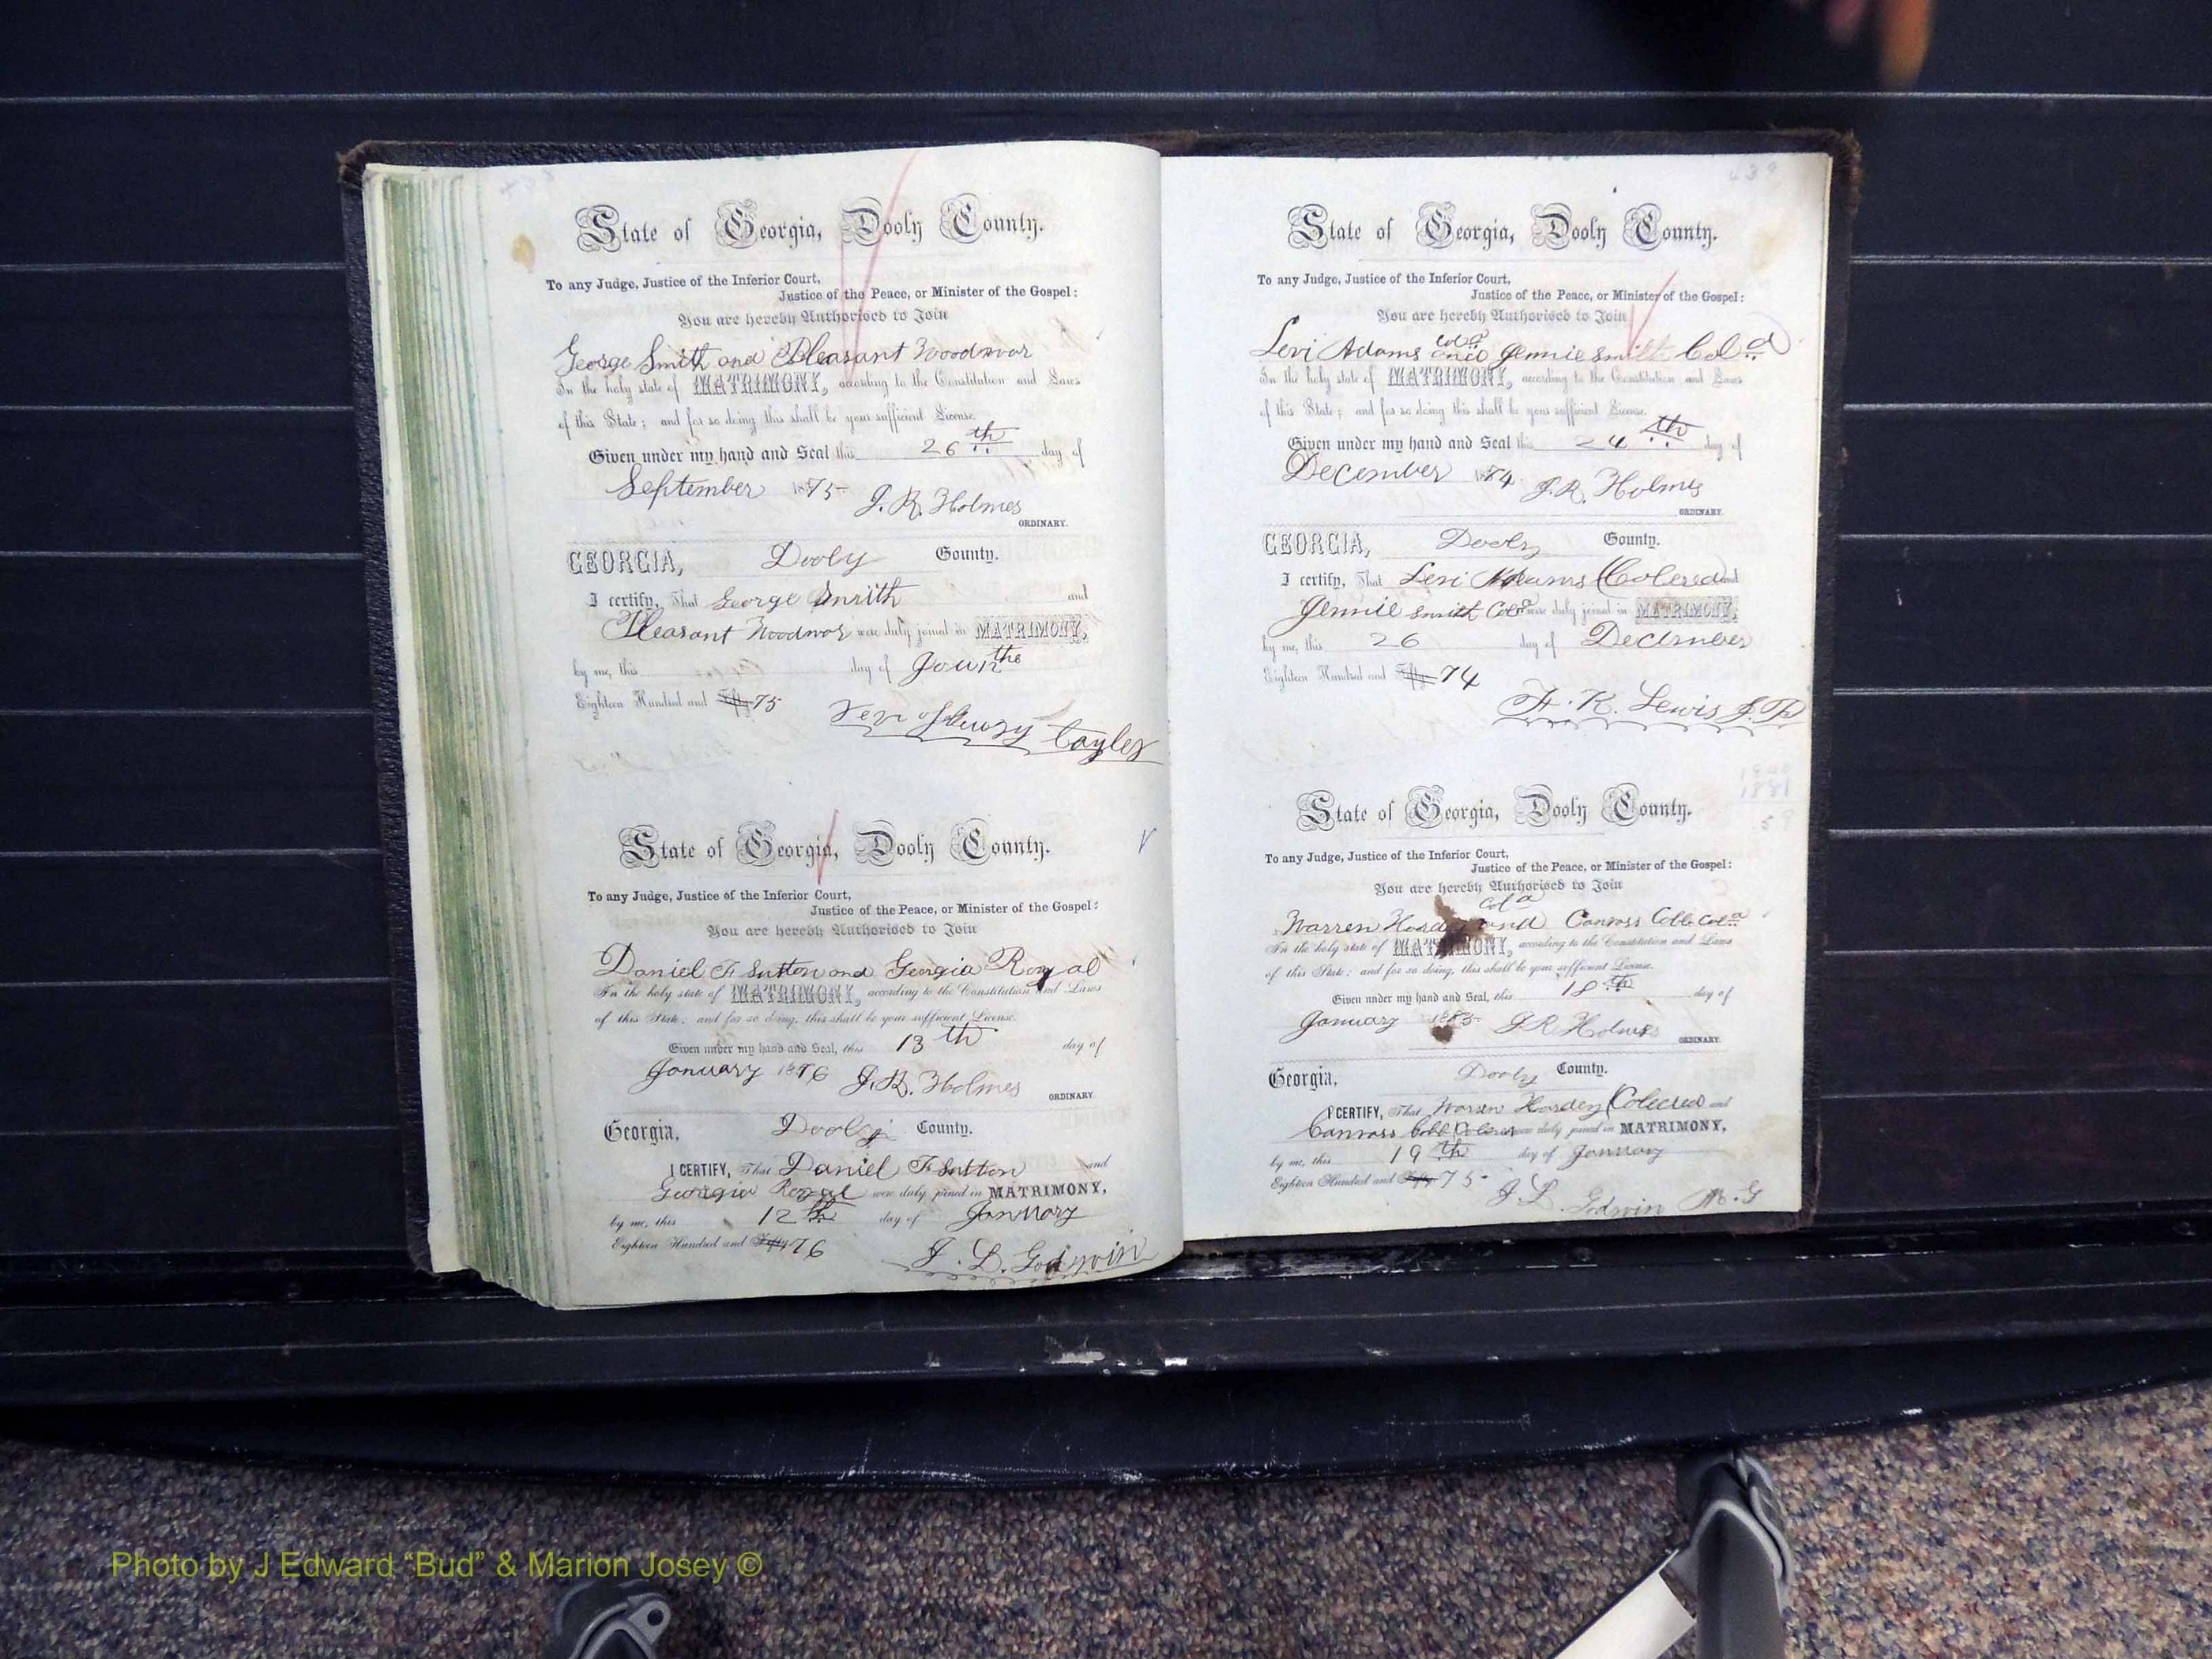 State of Georgia, Dooly County.
To any Judge, Justice of the Inferior Court,
Justice of the Peace, or Minister of the Gospel:
You are hereby Authorised to Join
George Smith and Pleasant Woodwor
In the holy state of MATRIMONY, according to the Constitution and Laws
of this State; and for so doing this shall be your sufficient License.
Given under my hand and Seal this 26th day of
September 1875 J. R. Holmes
ORDINARY.
GEORGIA, Dooly County.
I certify, That George Smith and
Pleasant Woodwor were duly joined in MATRIMONY,
by me, this day of
Eighteen Hundred and Fifty 75
Tayler
State of Georgia, Dooly County.
To any Judge, Justice of the Inferior Court,
Justice of the Peace, or Minister of the Gospel:
You are hereby Authorised to Join
Daniel F Sutton and Georgia Royal
In the holy state of MATRIMONY, according to the Constitution and Laws
of this State; and for so doing, this shall be your sufficient License.
Given under my hand and Seal, this 13th day of
January 1876 J. R. Holmes
ORDINARY.
Georgia, Dooly County.
I CERTIFY, That Daniel F Sutton and
Georgia Royal were duly joined in MATRIMONY,
by me, this 12th day of January
Eighteen Hundred and Fifty 76
J. L. Godwin
State of Georgia, Dooly County.
To any Judge, Justice of the Inferior Court,
Justice of the Peace, or Minister of the Gospel:
You are hereby Authorised to Join
Levi Adams Cold and Jennie Smith Cold
In the holy state of MATRIMONY, according to the Constitution and Laws
of this State; and for so doing this shall be your sufficient License.
Given under my hand and Seal this 24th day of
December 1874 J. R. Holmes
ORDINARY.
GEORGIA, Dooly County.
I certify, That Levi Adams (Colered and
Jennie Smith Cold were duly joined in MATRIMONY,
by me, this 26 day of December
Eighteen Hundred and Fifty 74
K. Lewis J. P
State of Georgia, Dooly County.
To any Judge, Justice of the Inferior Court,
Justice of the Peace, or Minister of the Gospel:
You are hereby Authorised to Join
Warren Cold and Canvass Cobb Cold
In the holy state of MATRIMONY, according to the Constitution and Laws
of this State; and for so doing, this shall be your sufficient License.
Given under my hand and Seal, this 18th day of
January J. R. Holmes
ORDINARY.
Georgia, Dooly County.
I CERTIFY, That Warren Hardey (Colered and
Canvass Cobb were duly joined in MATRIMONY,
by me, this 19th day of January
Eighteen Hundred and Fifty 75
J. L. Godwin M. G
Photo by J Edward “Bud” & Marion Josey ©